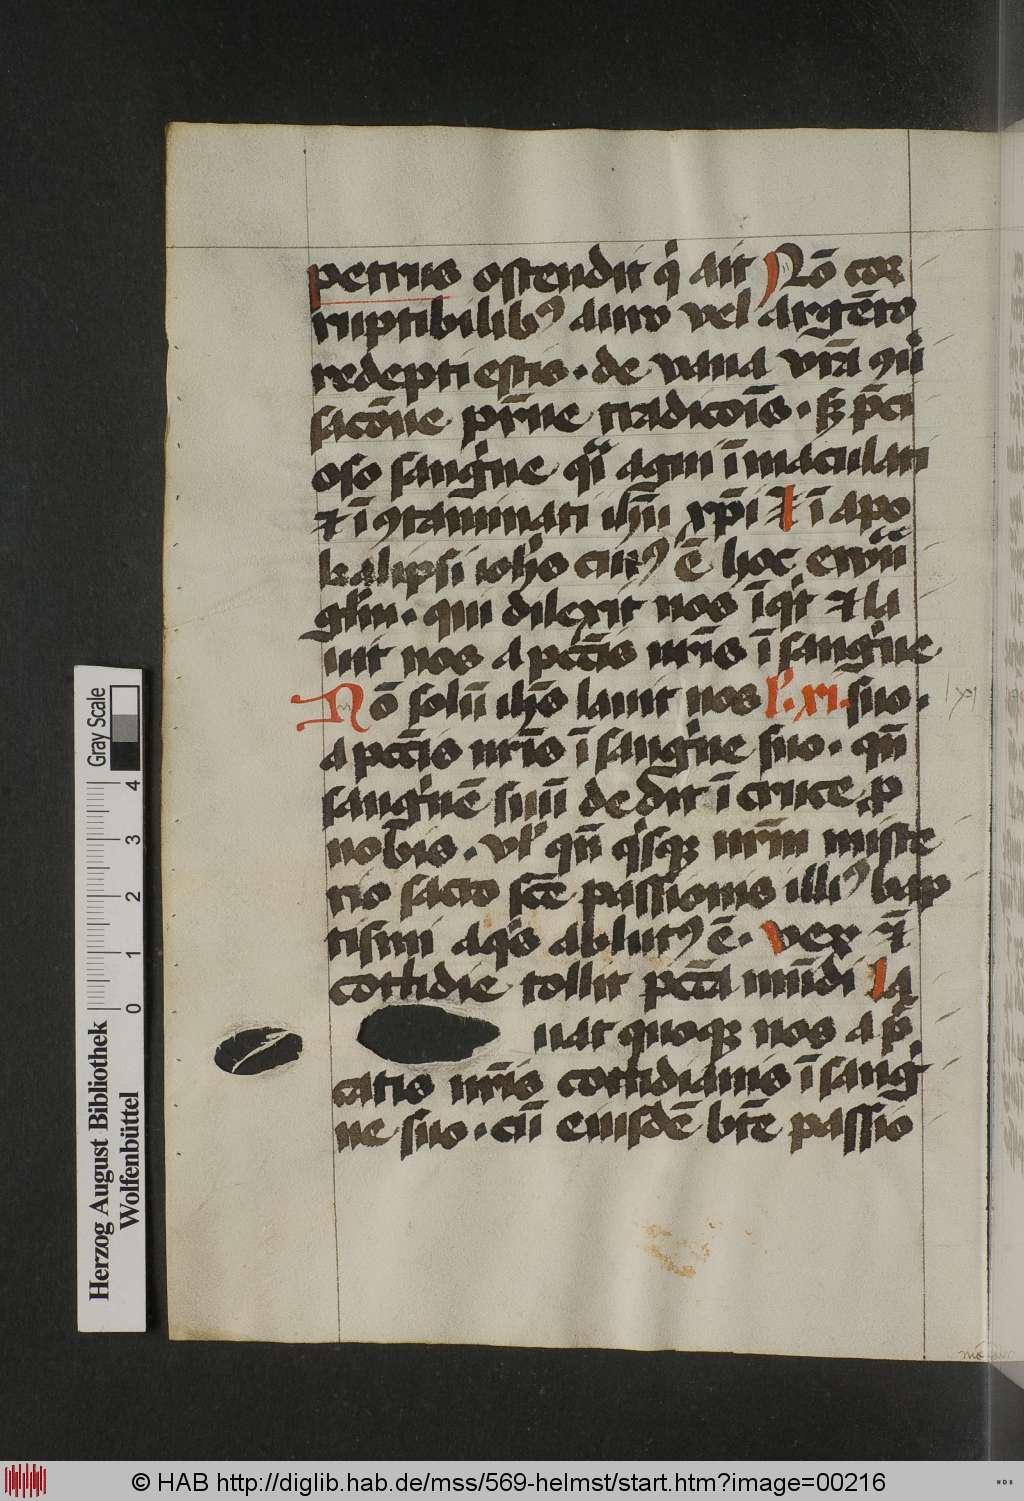 petrus ostendit qͥ ait Nō cor
ruptibilibꝰ auro vel argēto
redēpti estis · de vana vr̄a ꝯuͥ
sacōne pr̄ne tradicōis̄ · sꝫ p̄ci
oso sangͥne qͣi agni īmaculati
⁊ ī ꝯtamīnati ihū xp̄i ⁊ ī apo
kalipsi ioh̄is cuiꝰ ē hoc ewāͣ
glm̄ · qui dilexit nos īqͥt ⁊ la
uit nos a pctīs nr̄is ī sangͥne
Nō solū ih̄s lauit nos l. xi. suo ·
a pctīs nr̄is ī sangͥne suo · qn̄
sangͥnē suū dedit ī cruce p
nobis · vl̓ qn̄ qͥsqꝫ nr̄m̄ miste
rio sacro sc̄e passionis illiꝰ bap
tismi aqͥs ablutꝰ ē · veꝝ ⁊̄
cottidie tollit pctā mūdi la
uat quoqꝫ nos a p̄
catis nr̄is cottidianis ī sangͥ
ne suo · cū eiusdē bt̄e passiō
Gray Scale
4
3
2
1
0
Herzog August Bibliothek
Wolfenbüttel
© HAB http://diglib.hab.de/mss/569-helmst/start.htm?image=00216